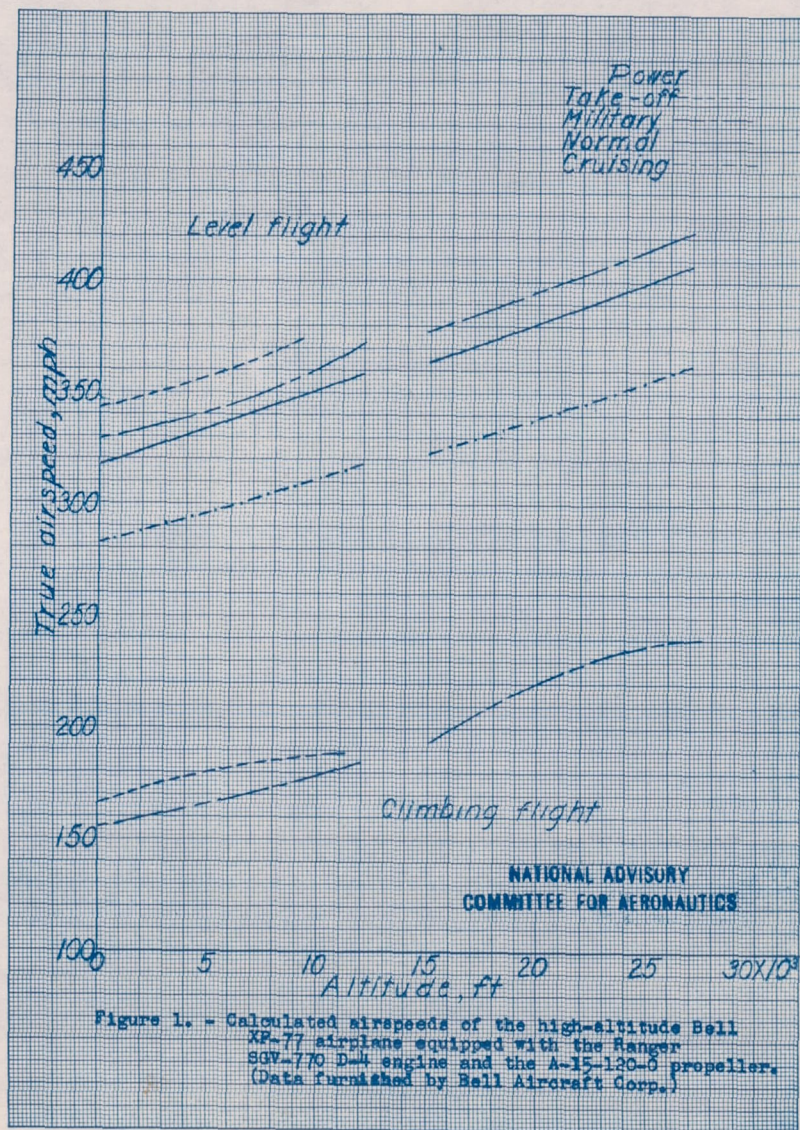 Power
Take-off
Military
Normal
Cruising
450
Level flight
400
350
True airspeed, mph
300
250
200
Climbing flight
150
NATIONAL ADVISORY
COMMITTEE FOR AERONAUTICS
100
0 5 10 15 20 25 30X10³
Altitude, ft
Figure 1. - Calculated airspeeds of the high-altitude Bell
XP-77 airplane equipped with the Ranger
SGV-770 D-4 engine and the A-15-120-0 propeller.
(Data furnished by Bell Aircraft Corp.)